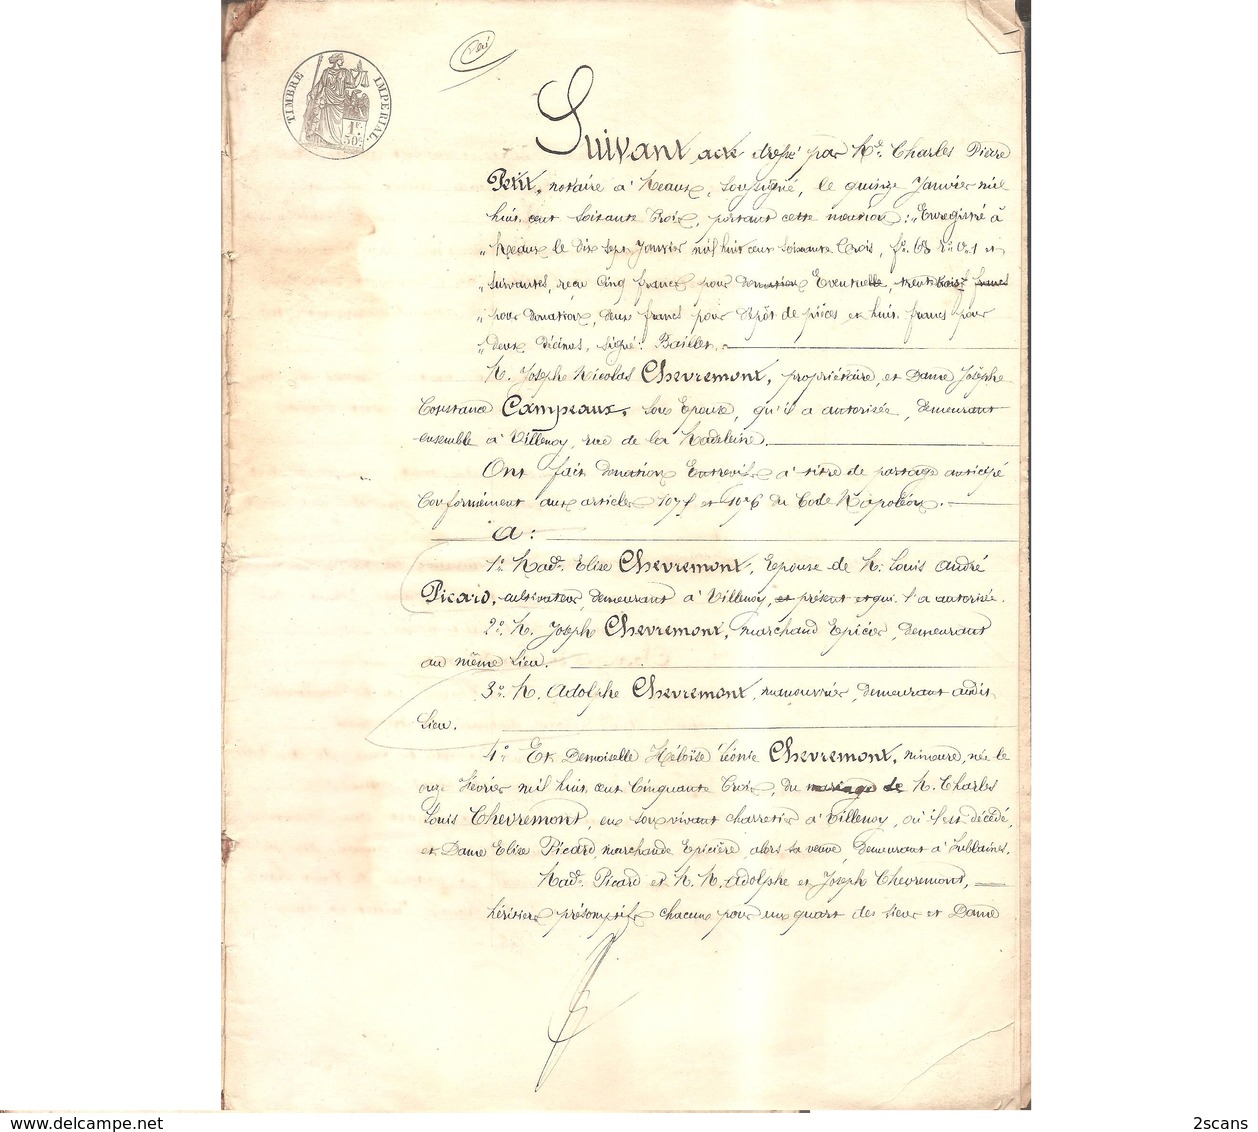 TIMBRE IMPERIAL.
1F. 50C.
Suivant acte dressé par Me. Charles Pierre
Petit, notaire à Meaux, soussigné, le quinze Janvier mil
huit cent soixante trois, portant cette mention : " Enregistré à
" Meaux le dix sept Janvier mil huit cent soixante trois, fo. 68 Ro. Co. 1 et
" suivantes, reçu cinq francs pour donation Eventuelle, francs
" pour donation, deux francs pour dépôt de pièces et huit francs pour
" deux décimes, signé : Baillet.
M. Joseph Nicolas Chevremont, propriétaire, et Dame Josèphe
Constance Campeaux, son Epouse, qu'il a autorisée, demeurant
ensemble à Villenoy, rue de la Madeleine.
Ont fait donation Entrevifs à titre de partage anticipé
Conformément aux articles 1075 et 1076 du Code Napoléon.
A :
1o. Made. Elise Chevremont, Epouse de M. Louis André
Picard, cultivateur, demeurant à Villenoy, et présent et qui l'a autorisée.
2o. M. Joseph Chevremont, marchand Epicier, demeurant
au même lieu.
3o. M. Adolphe Chevremont, manouvrier, demeurant audit
lieu.
4o Et Demoiselle Héloïse Léonie Chevremont, mineure, née le
onze février mil huit cent cinquante trois, du mariage de M. Charles
Louis Chevremont, en son vivant charretier à Villenoy, où il est décédé,
et Dame Elise Picard, marchande Epicière, alors sa veuve, demeurant à
Made. Picard et M. M. Adolphe et Joseph Chevremont,
héritiers présomptifs chacun pour un quart des sieur et Dame
2scans